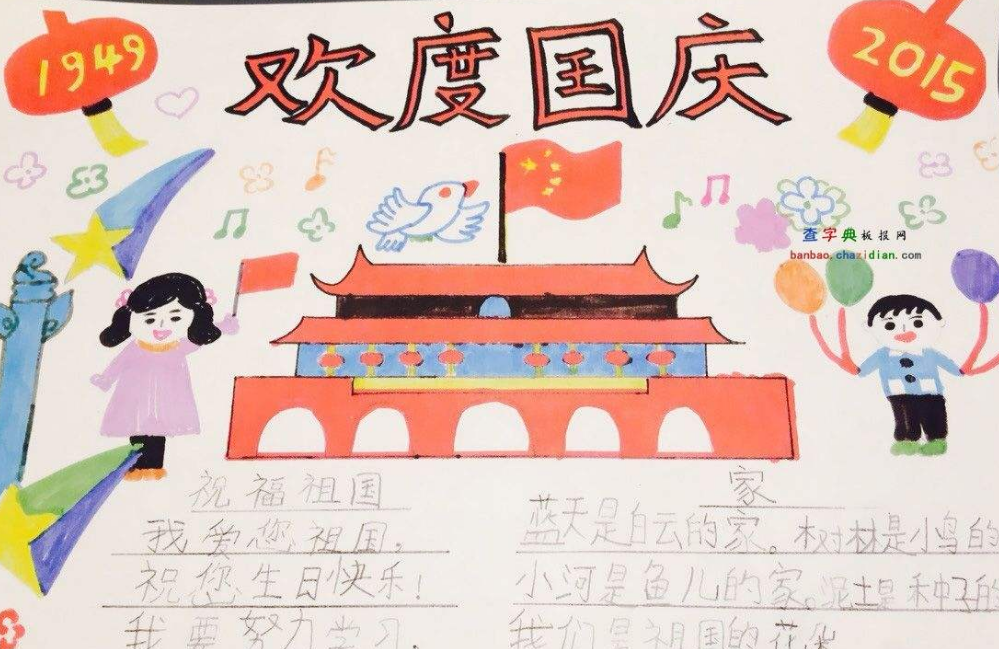 1949
欢度国庆
2015
查字典板报网
banbao.chazidian.com
祝福祖国
我爱您祖国,
祝您生日快乐!
我要努力学习.
家
蓝天是白云的家。树林是小鸟的
小河是鱼儿的家。泥土是种子的
我们是祖国的花